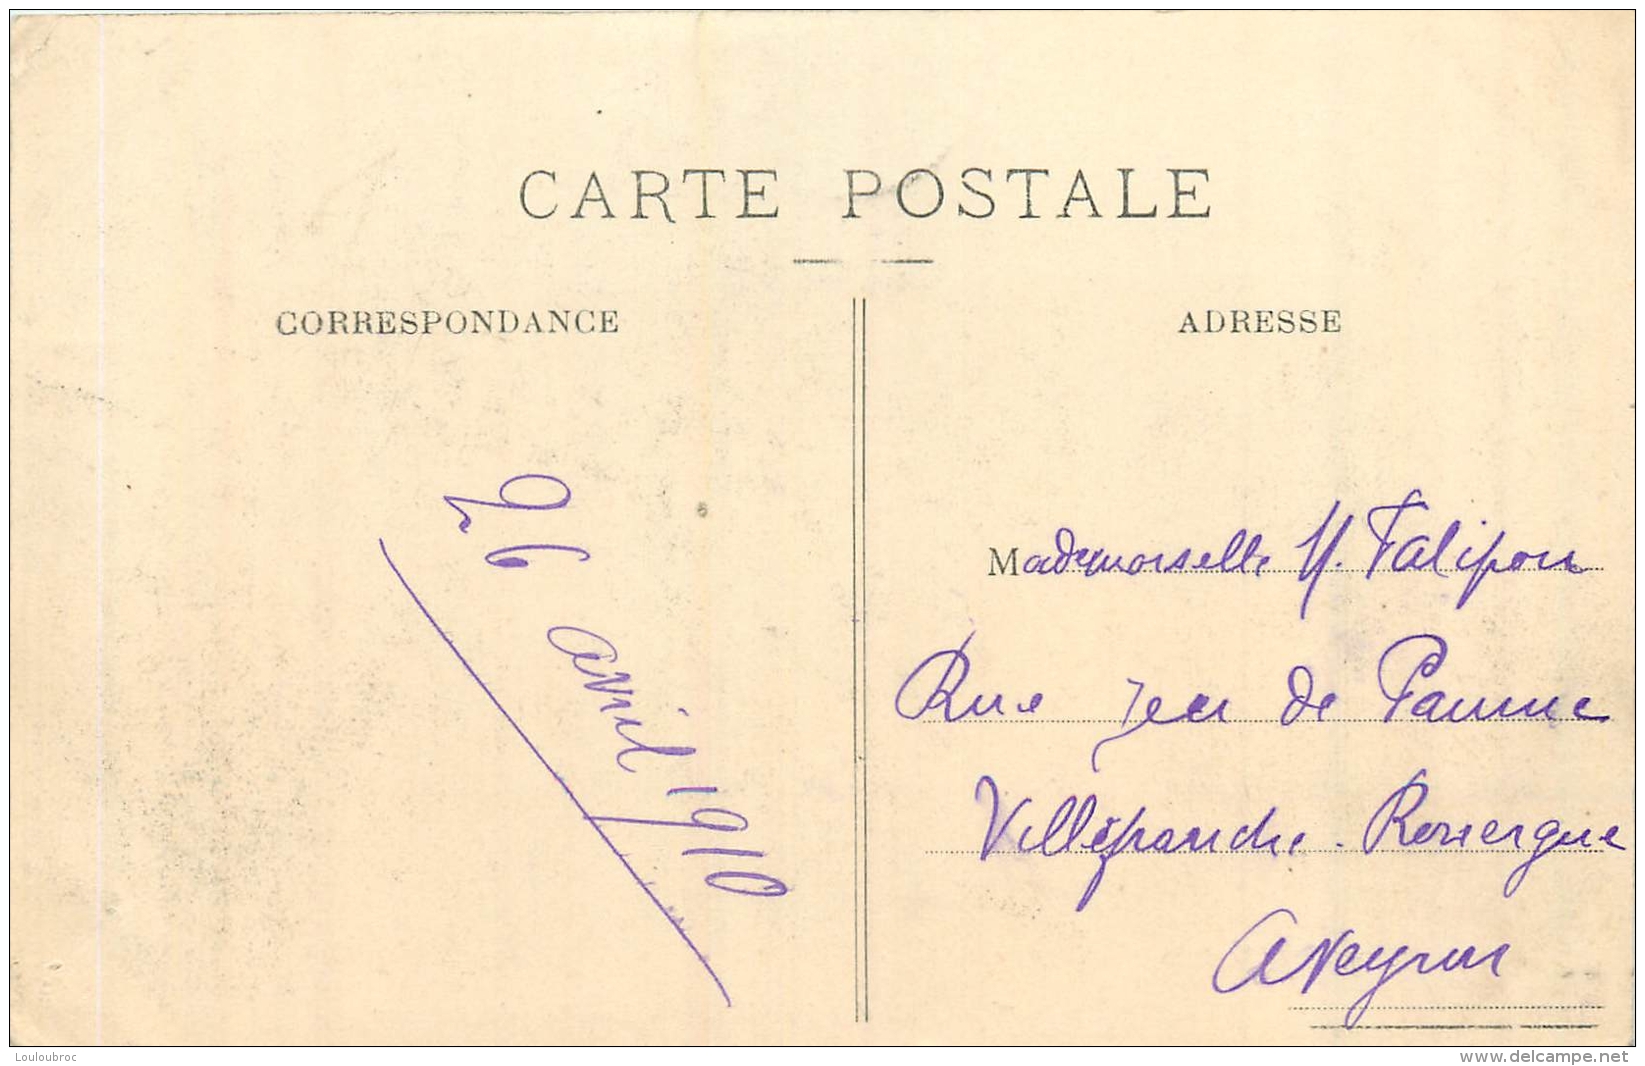 CARTE POSTALE
CORRESPONDANCE
ADRESSE
26 avril 1910
Mademoiselle M. Falipou
Rue Jeu de Paume
Villefranche. Rouergue
Aveyron
Louloubroc
www.delcampe.net